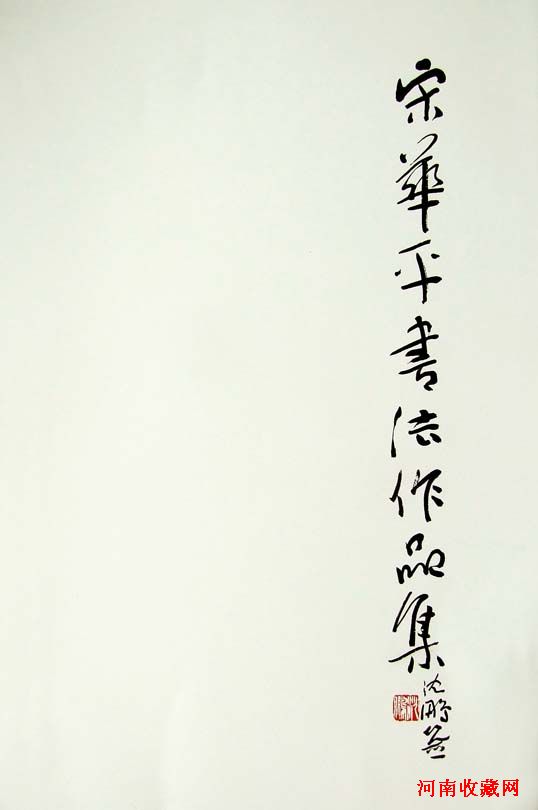 宋華平書法作品集
沈鹏
河南收藏网